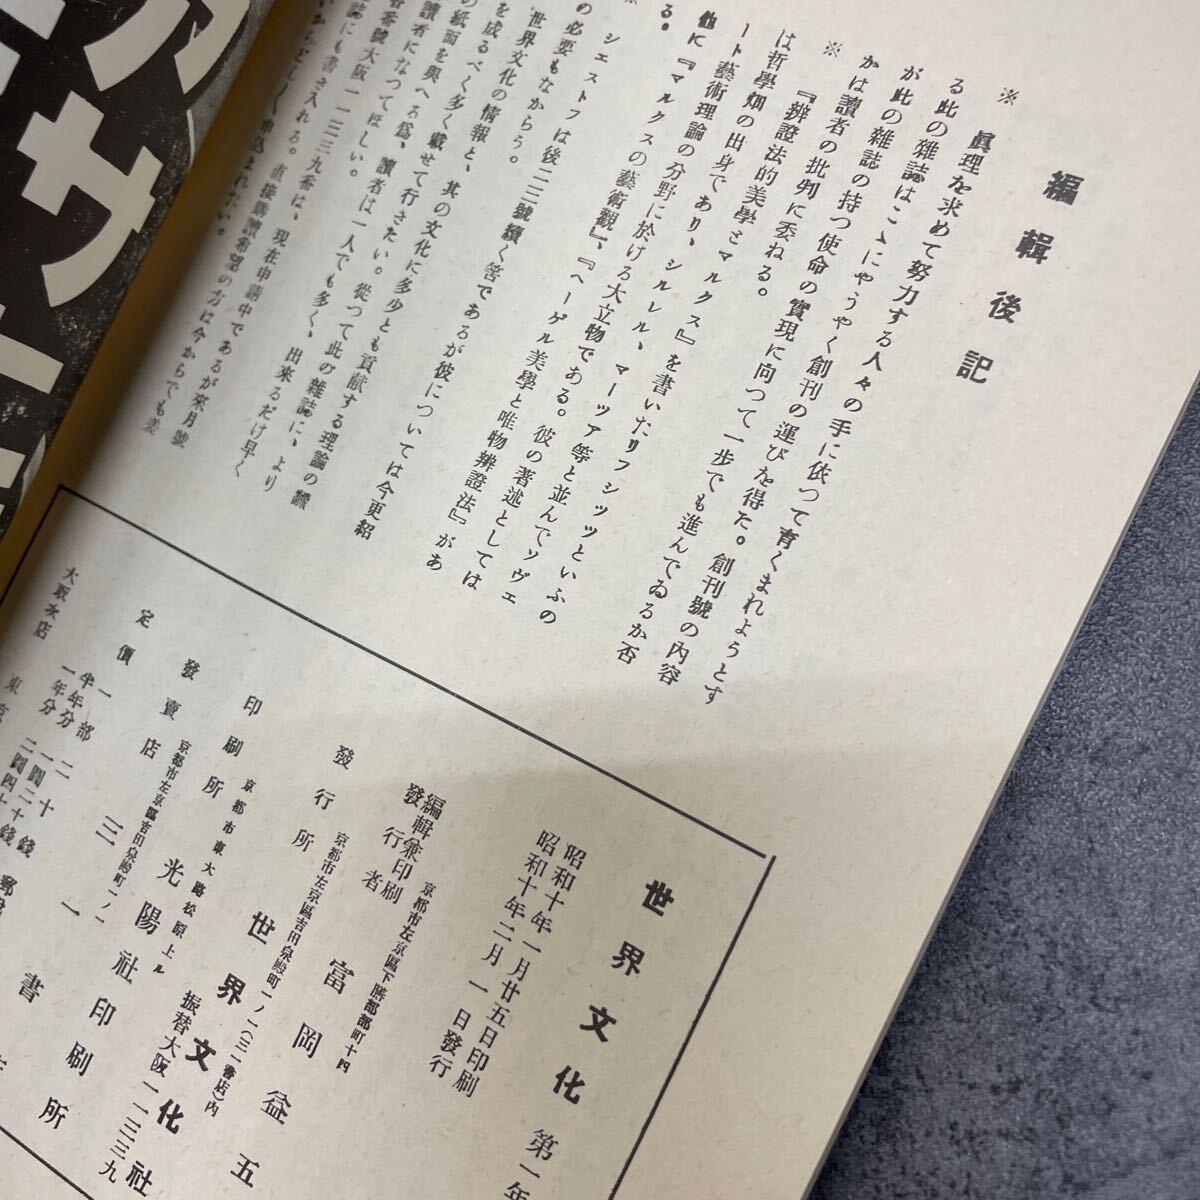 編輯後記
※　眞理を求めて努力する人々の手に依つて育くまれようとす
る此の雜誌はこゝにやうやく創刊の運びを得た。創刊號の內容
が此の雜誌の持つ使命の實現に向つて一步でも進んでゐるか否
かは讀者の批判に委ねる。
※　『辨證法的美學とマルクス』を書いたリフシツツといふの
は哲學畑の出身であり、シルレル、マーツア等と並んでソヴェ
ート藝術理論の分野に於ける大立物である。彼の著述としては
他に『マルクスの藝術觀』、『ヘーゲル美學と唯物辨證法』があ
る。
※　シエストフは後二三號續く筈であるが彼については今更紹
の必要もなからう。
世界文化の情報と、其の文化に多少とも貢献する理論の
を成るべく多く載せて行きたい。從つて此の雜誌に、より
の紙面を與へる爲、讀者は一人でも多く、出來るだけ早く
讀者になつてほしい。
番號大阪一一三三九番は、現在申請中であるが來月號
誌にも書き入れる。直接購讀希望の方は今からでも差
からどし〳〵申込まれたい。
世界文化　第一年
昭和十年一月廿五日印刷
昭和十年二月一日發行
京都市左京區下鴨
町十四
編輯兼印刷
發行者　富岡益五
京都市左京區吉田泉殿町一ノ一（三一書店）內
發行所　世界文化社
振替大阪一一三三九
京都市東大路松原上ル
印刷所　光陽社印刷所
京都市左京區吉田泉殿町一ノ一
發賣店　三一書
定價
一部　二十錢
半年分　一圓二十錢
一年分　二圓四十錢
大取次店　東京